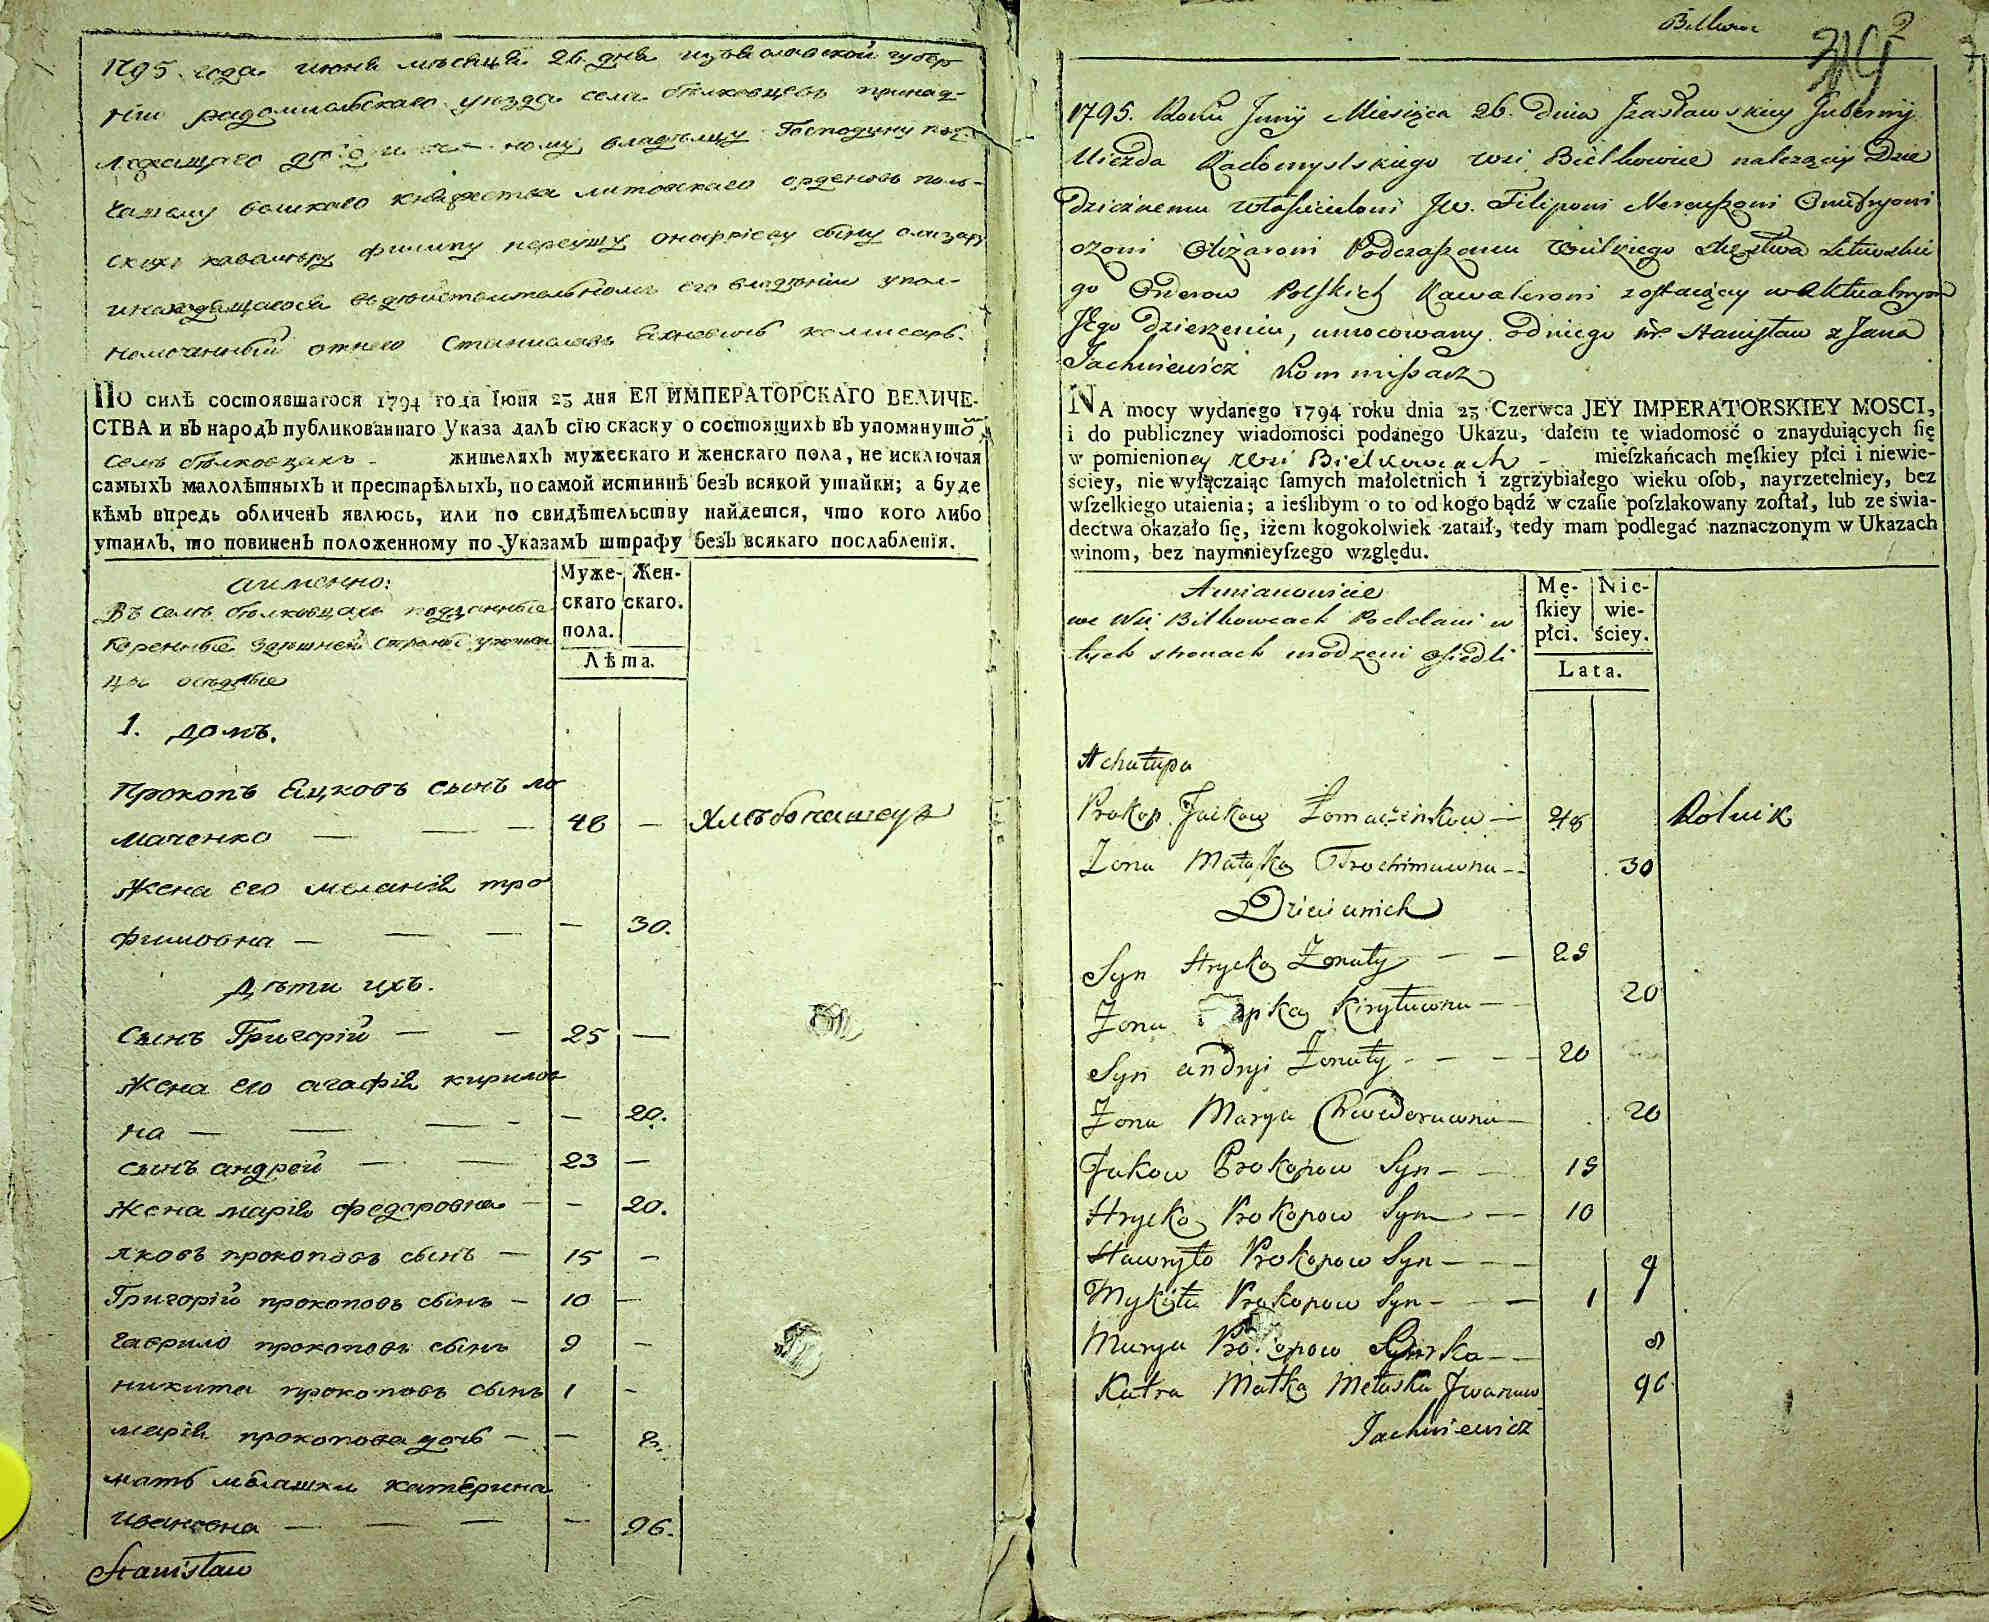 1795 года июня месяца 26 дня изяславской губер
ніи радомысльскаго уезда села белковцевъ принад-
лежащаго ному владельцу Господину под
чашему великаго княжества литовскаго орденовъ поль-
скихъ кавалеру филипу нереушу онофріеву сыну олизару
инаходящагося вдействительномъ его владеніи упол-
номоченный отнего Станиславъ Яхневичъ комисаръ.
ПО силѣ состоявшагося 1794 года Іюня 23 дня ЕЯ ИМПЕРАТОРСКАГО ВЕЛИЧЕ-
СТВА и въ народъ публикованнаго Указа далъ сію скаску о состоящихъ въ упомянутѡ
селе белковцахъ - жителяхъ мужескаго и женскаго пола, не исключая
самыхъ малолѣтныхъ и престарѣлыхъ, по самой истиннѣ безъ всякой утайки; а буде
кѣмъ впредь обличенъ явлюсь, или по свидѣтельству найдется, что кого либо
утаилъ, то повиненъ положенному по Указамъ штрафу безъ всякаго послабленія.
аименно:
Въ селе белковцахъ подданные
коренные здешней страны урожен
цы оседлые
Муже- Жен-
скаго скаго.
пола.
Лѣта.
1. домъ.
Прокопъ Яцковъ сынъ ло
маченко — — — 48 — Хлебопашецъ
Жена его меланія тро
фимовна — — — — 30.
Дети ихъ.
Сынъ Григорій — — 25 —
Жена его агафія кирилов
на — — — — 20.
сынъ андрей — — 23 —
жена марія федоровна — — 20.
яковъ прокоповъ сынъ — 15 —
Григорій прокоповъ сынъ — 10 —
гаврило прокоповъ сынъ 9 —
никита прокоповъ сынъ 1 -
марія прокопова дочь — — 8.
мать мелашки катерина
ивановна — — — — 96.
Stanisław
Bilkowce
2
1795. Roku Junij Miesiąca 26. Dnia Izasławskiey Gubernij
Uiezda Radomyslskiego wsi Bielkowiec należącey Dzie
dzicznemu Włascicielowi JW. Filipowi Nereuszowi Onufryowi
czowi Olizarowi Podczaszemu Wielkiego Xięstwa Litewskie
go Orderow Polskich Kawalerowi zostaiącey w Aktualnym
Jego dzierzeniu, umocowany od niego Stanisław z Jana
Jachniewicz Kommissarz
NA mocy wydanego 1794 roku dnia 23 Czerwca JEY IMPERATORSKIEY MOSCI,
i do publiczney wiadomości podanego Ukazu, dałem tę wiadomość o znayduiących ſię
w pomienioney wsi Bielkowcach - mieſzkańcach męſkiey płci i niewie-
ściey, nie wyłączaiąc ſamych małoletnich i zgrzybiałego wieku oſob, nayrzetelniey, bez
wſzelkiego utaienia; a ieślibym o to od kogo bądź w czaſie poſzlakowany zoſtał, lub ze świa-
dectwa okazało ſię, iżem kogokolwiek zataił, tedy mam podlegać naznaczonym w Ukazach
winom, bez naymnieyſzego względu.
Amianowicie
we Wsi Bilkowcach Poddani w
tych stronach urodzeni Osiedli
Mę- Nie-
ſkiey wie-
płci. ściey.
Lata.
Achałupa
Prokop Jackow Łomaczenkow — 48 Rolnik
Zona Małaska Trochimowna -- 30
Dzieci unich
Syn Hrycko Zonaty — — 25
Zona apka Kiryłowna — 20
Syn andryi Zonaty - — — 20
Zona Marya Chwedorowna — 20
Jakow Prokopow Syn — — 15
Hrycko Prokopow Syn — 10
Hawryło Prokopow Syn — — 9
Mykita Prokopow Syn - — 1
Marya Prokopow Curka — — 8
Katra Matka Mełaski Iwanow 96
Jachniewicz